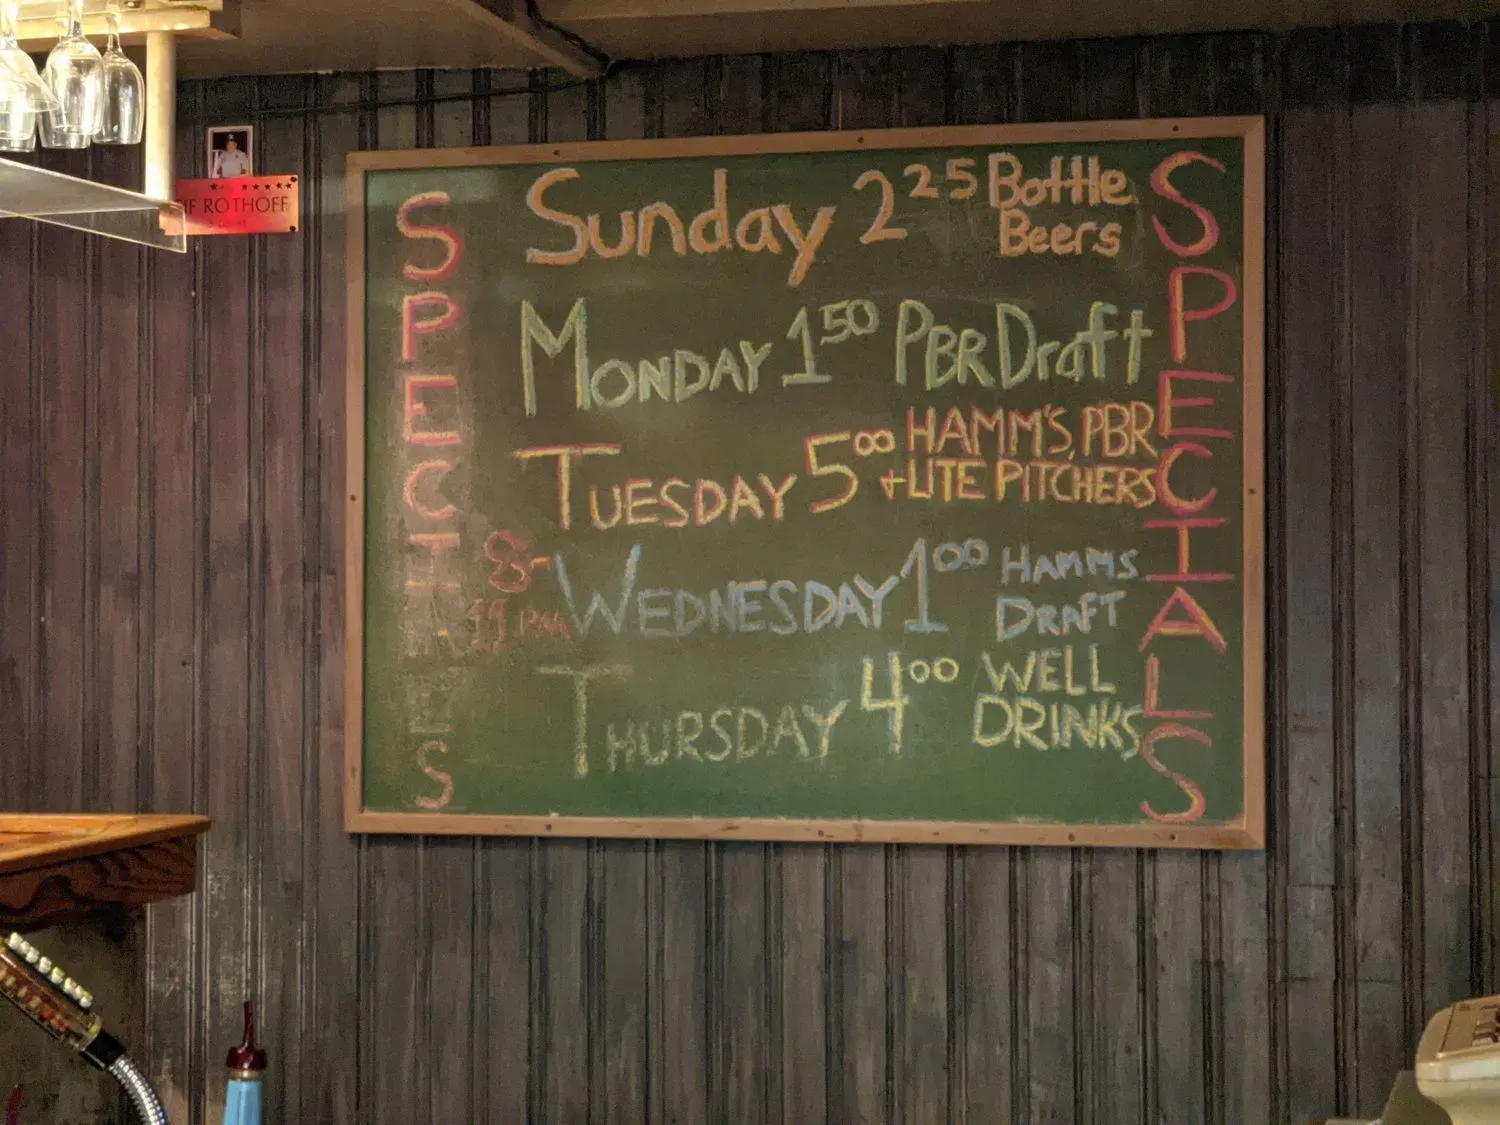 ROTHOFF
SPECIALS
Sunday 2²⁵ Bottle
Beers
MONDAY 1⁵⁰ PBR Draft
TUESDAY 5⁰⁰ HAMM'S, PBR
+ LITE PITCHERS
8-
11 PM
WEDNESDAY 1⁰⁰ HAMMS
DRAFT
THURSDAY 4⁰⁰ WELL
DRINKS
SPECIALS